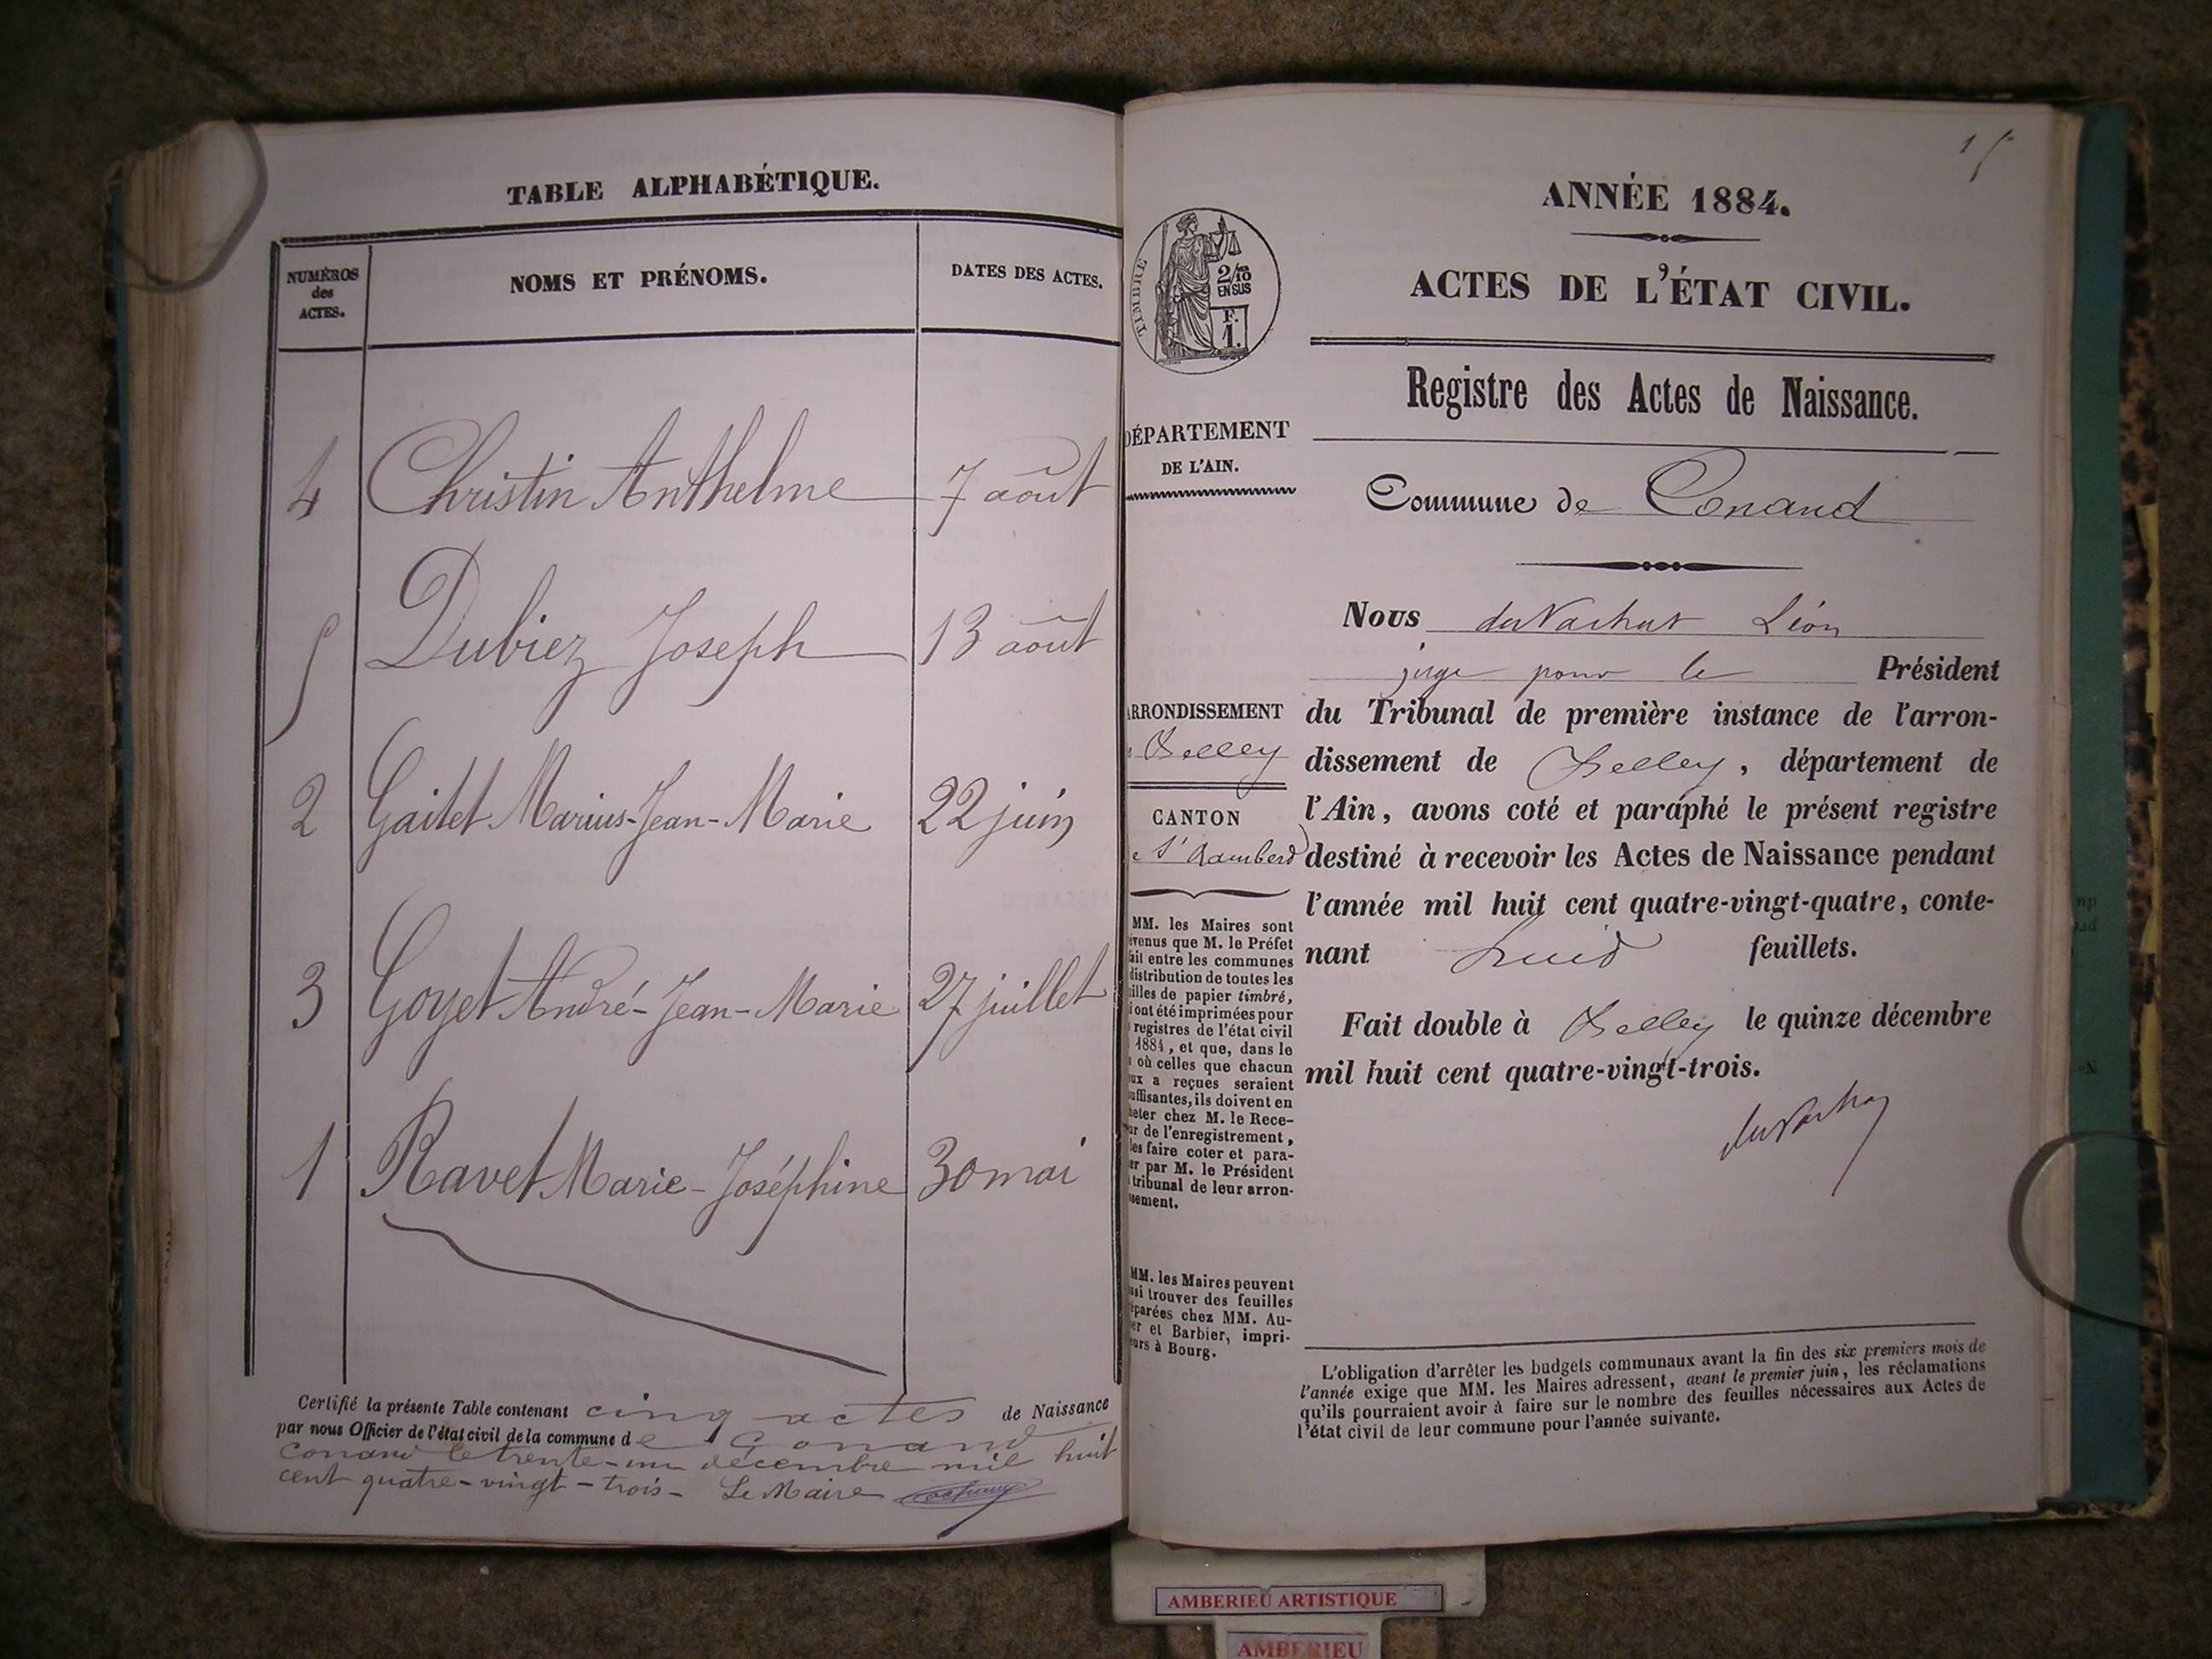 TABLE ALPHABÉTIQUE.
NUMÉROS des ACTES.
NOMS ET PRÉNOMS.
DATES DES ACTES.
4 Christin Anthelme 7 août
5 Dubiez Joseph 13 août
2 Gaitet Marius-Jean-Marie 22 juin
3 Goyet André-Jean-Marie 27 juillet
1 Ravet Marie-Joséphine 30 mai
Certifié la présente Table contenant cinq actes de Naissance
par nous Officier de l'état civil de la commune de Conand
Conand le trente-un décembre mil huit
cent quatre-vingt-trois- Le Maire
TIMBRE
2/10
EN SUS
F.
1.
DÉPARTEMENT
DE L'AIN.
ARRONDISSEMENT
Belley
CANTON
St Rambert
MM. les Maires sont
que M. le Préfet
entre les communes
distribution de toutes les
de papier timbré,
ont été imprimées pour
registres de l'état civil
1884, et que, dans le
où celles que chacun
a reçues seraient
ils doivent en
chez M. le Rece-
de l'enregistrement,
les faire coter et para-
par M. le Président
tribunal de leur arron-
MM. les Maires peuvent
trouver des feuilles
chez MM. Au-
et Barbier, impri-
à Bourg.
15
ANNÉE 1884.
ACTES DE L'ÉTAT CIVIL.
Registre des Actes de Naissance.
Commune de Conand
Nous Léon
juge pour le Président
du Tribunal de première instance de l'arron-
dissement de Belley, département de
l'Ain, avons coté et paraphé le présent registre
destiné à recevoir les Actes de Naissance pendant
l'année mil huit cent quatre-vingt-quatre, conte-
nant huit feuillets.
Fait double à Belley le quinze décembre
mil huit cent quatre-vingt-trois.
L'obligation d'arrêter les budgets communaux avant la fin des six premiers mois de
l'année exige que MM. les Maires adressent, avant le premier juin, les réclamations
qu'ils pourraient avoir à faire sur le nombre des feuilles nécessaires aux Actes de
l'état civil de leur commune pour l'année suivante.
AMBERIEU ARTISTIQUE
AMBERIEU